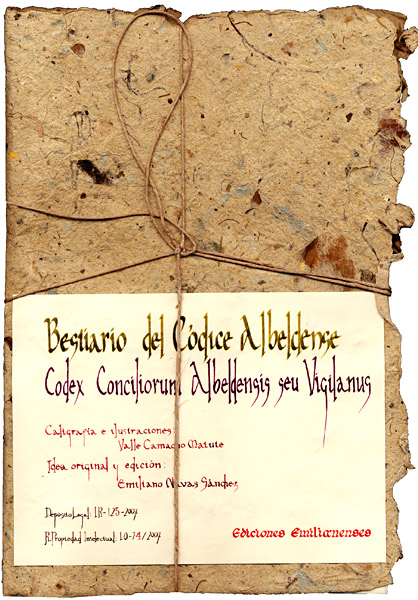 Bestiario del Códice Albeldense
Codex Conciliorum Albeldensis seu Vigilanus
Caligrafía e ilustraciones:
Valle Camacho Matute
Idea original y edición:
Emiliano Navas Sánchez
Depósito Legal: LR-125-2004
R.Propiedad Intelectual: LO-74/2004
Ediciones Emilianenses